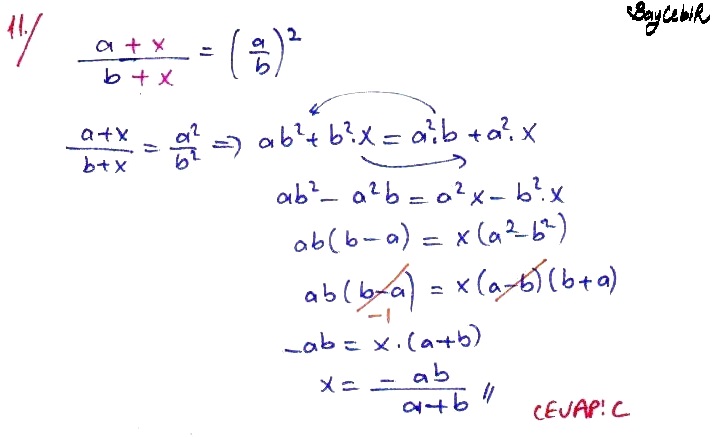 BayCebiR
11./ (a + x)/(b + x) = (a/b)²
(a+x)/(b+x) = a²/b² ⇒ ab² + b².x = a².b + a².x
ab² - a²b = a²x - b².x
ab(b-a) = x(a²-b²)
ab(b-a) = x(a-b)(b+a)
-1
-ab = x.(a+b)
x = - ab/(a+b) //
CEVAP: C